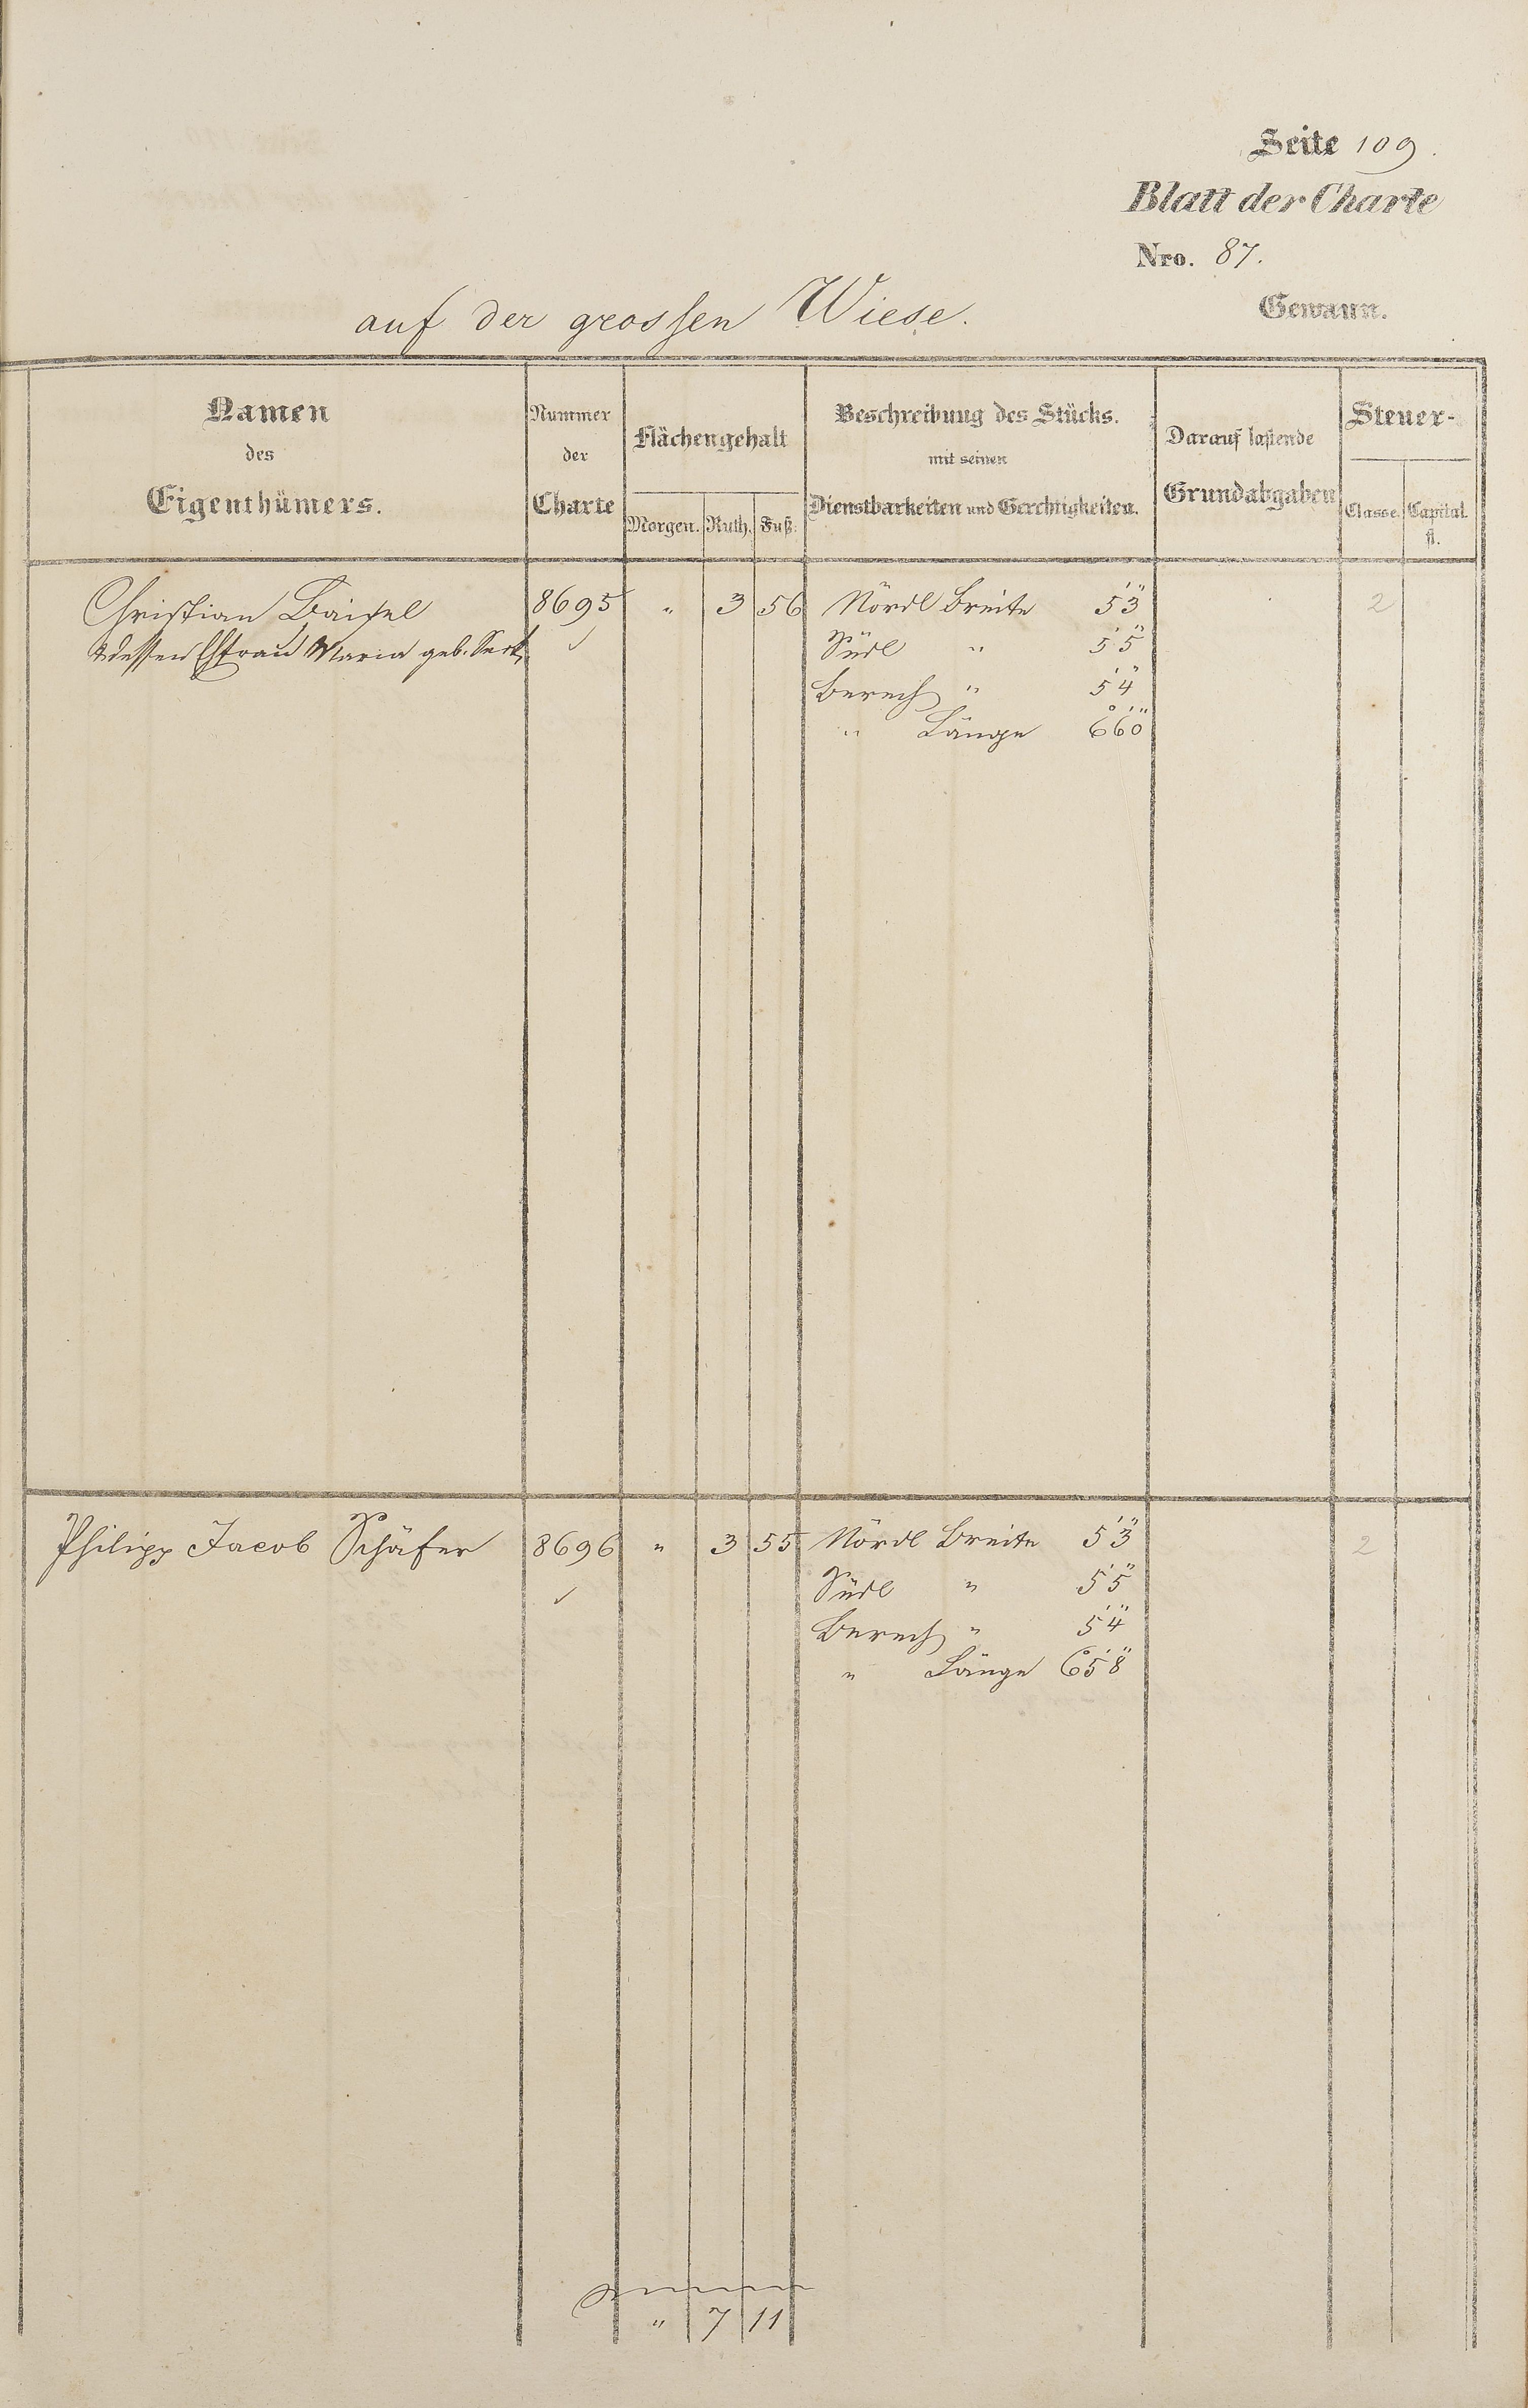 Seite 109.
Blatt der Charte
Nro. 87.
auf der grossen Wiese. Gewann.
Namen des Eigenthümers.
Nummer der Charte
Flächengehalt
Morgen. Ruth. Fuß.
Beschreibung des Stücks. mit seinen Dienstbarkeiten und Gerechtigkeiten.
Darauf lastende Grundabgaben
Steuer-
Classe. Capital. fl.
Christian Baisel 8695 " 3 56 Nördl Breite 5' 3" 2
& dessen Ehfrau Maria geb. ✓ Südl " 5' 5"
Berech " 5' 4"
" Länge 6° 6' 0"
Philipp Jacob Schäfer 8696 " 3 55 Nördl Breite 5' 3" 2
✓ Südl " 5' 5"
Berech " 5' 4"
" Länge 6° 5' 8"
" 7 11